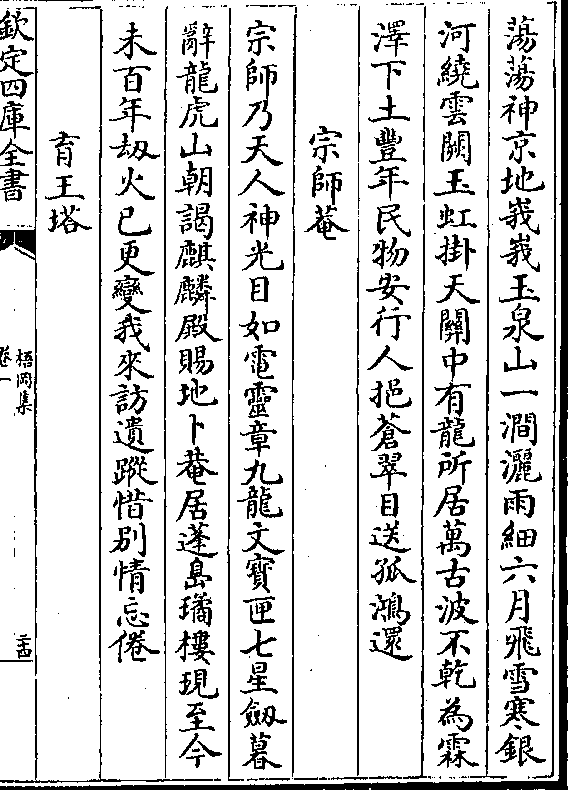 蕩蕩神京地峩峩玉泉山一澗灑雨細六月飛雪寒銀
河繞雲闕玉虹掛天關中有龍所居萬古波不乾為霖
澤下土豐年民物安行人挹蒼翠目送孤鴻還
宗師菴
宗師乃天人神光目如電靈章九龍文寶匣七星劔暮
辭龍虎山朝謁麒麟殿賜地卜菴居蓬島璚樓現至今
未百年劫火已更變我來訪遺蹤惜别情忘倦
育王塔
欽定四庫全書
梧岡集
卷一
二十四